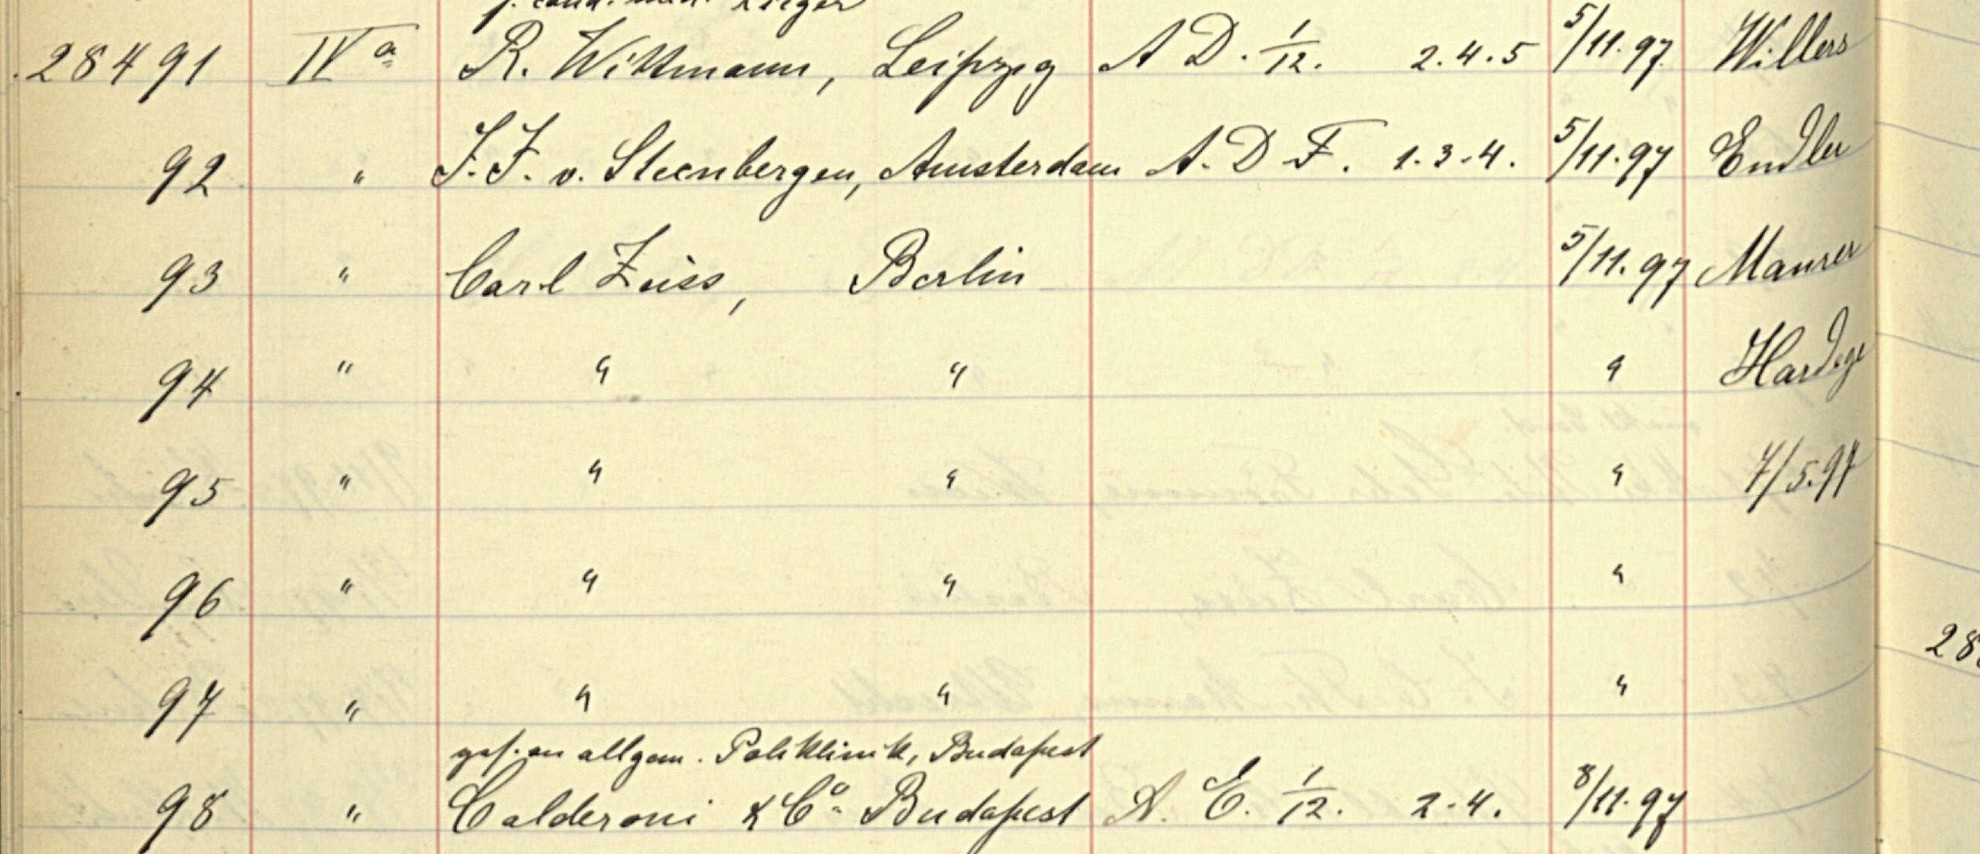 f. cand. med.
28491 IVa R. Wittmann, Leipzig A D. 1/12. 2.4.5 5/11.97. Willers
92 " J. F. v. Steenbergen, Amsterdam A. D F. 1.3.4. 5/11.97 Endler
93 " Carl Zeiss, Berlin 5/11.97 Maurer
94 " " " "
95 " " " " 7/5.97
96 " " " "
97 " " " "
allgem. Poliklinik, Budapest
98 " Calderoni & Co. Budapest A. E. 1/12. 2-4. 8/11.97